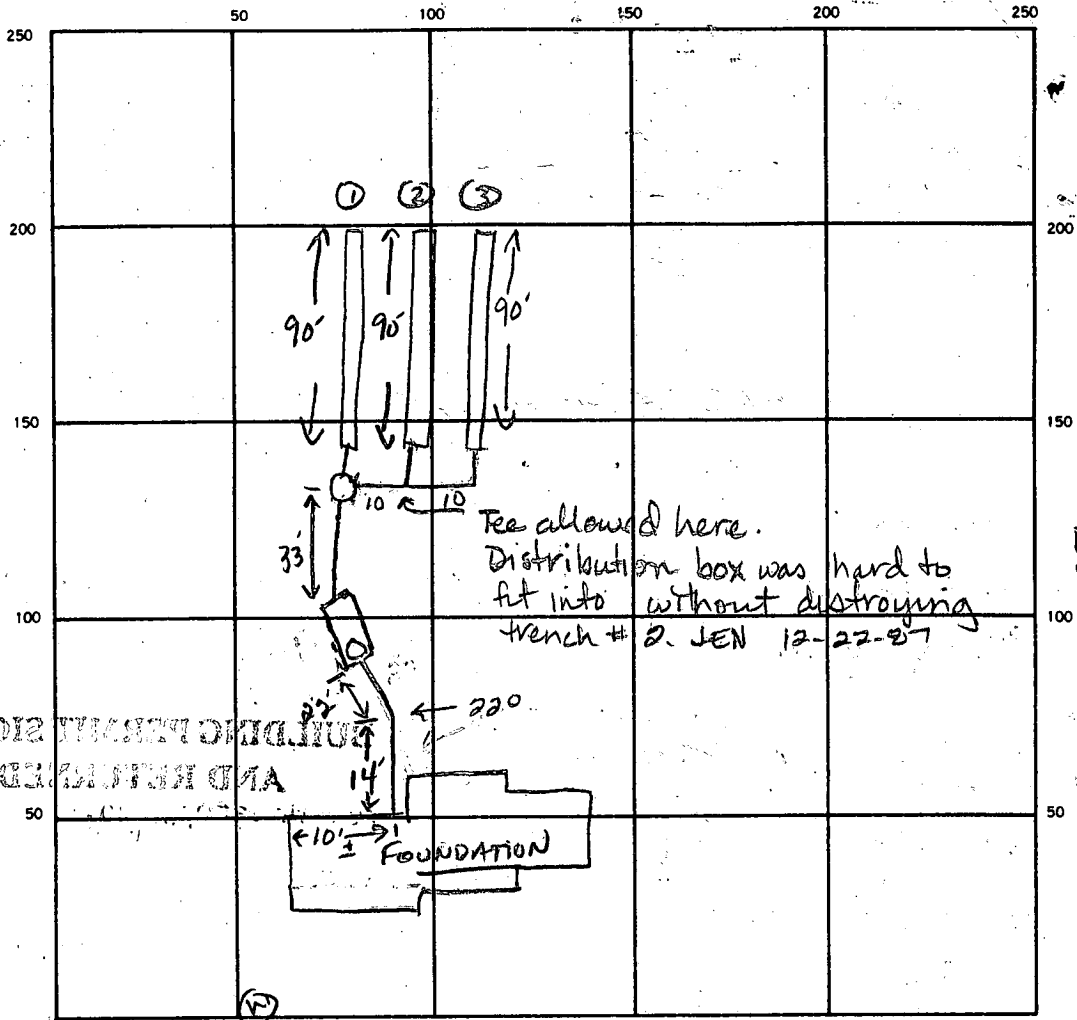 50 100 150 200 250
250
200 200
150 150
100 100
50 50
① ② ③
90' 90' 90'
10 10
33'
Tee allowed here.
Distribution box was hard to
fit into without distroying
trench # 2. JEN 12-22-87
22'
22°
14'
BUILDING PERMIT
AND RETURNED
←10'→
±
FOUNDATION
W